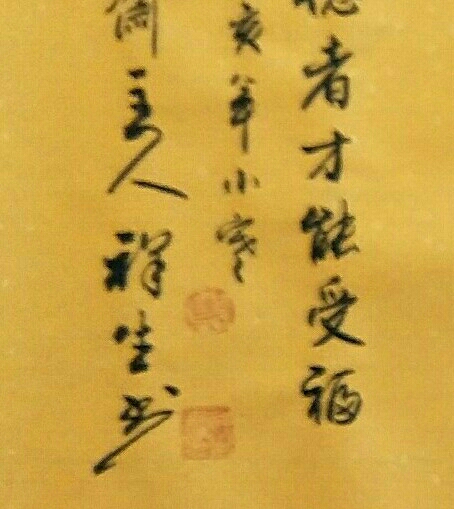 者才能受福
亥年小寒
主人祥生书